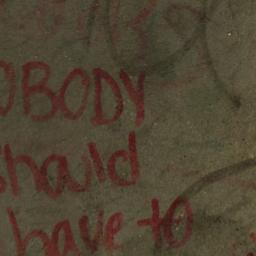 OBODY
should
have to